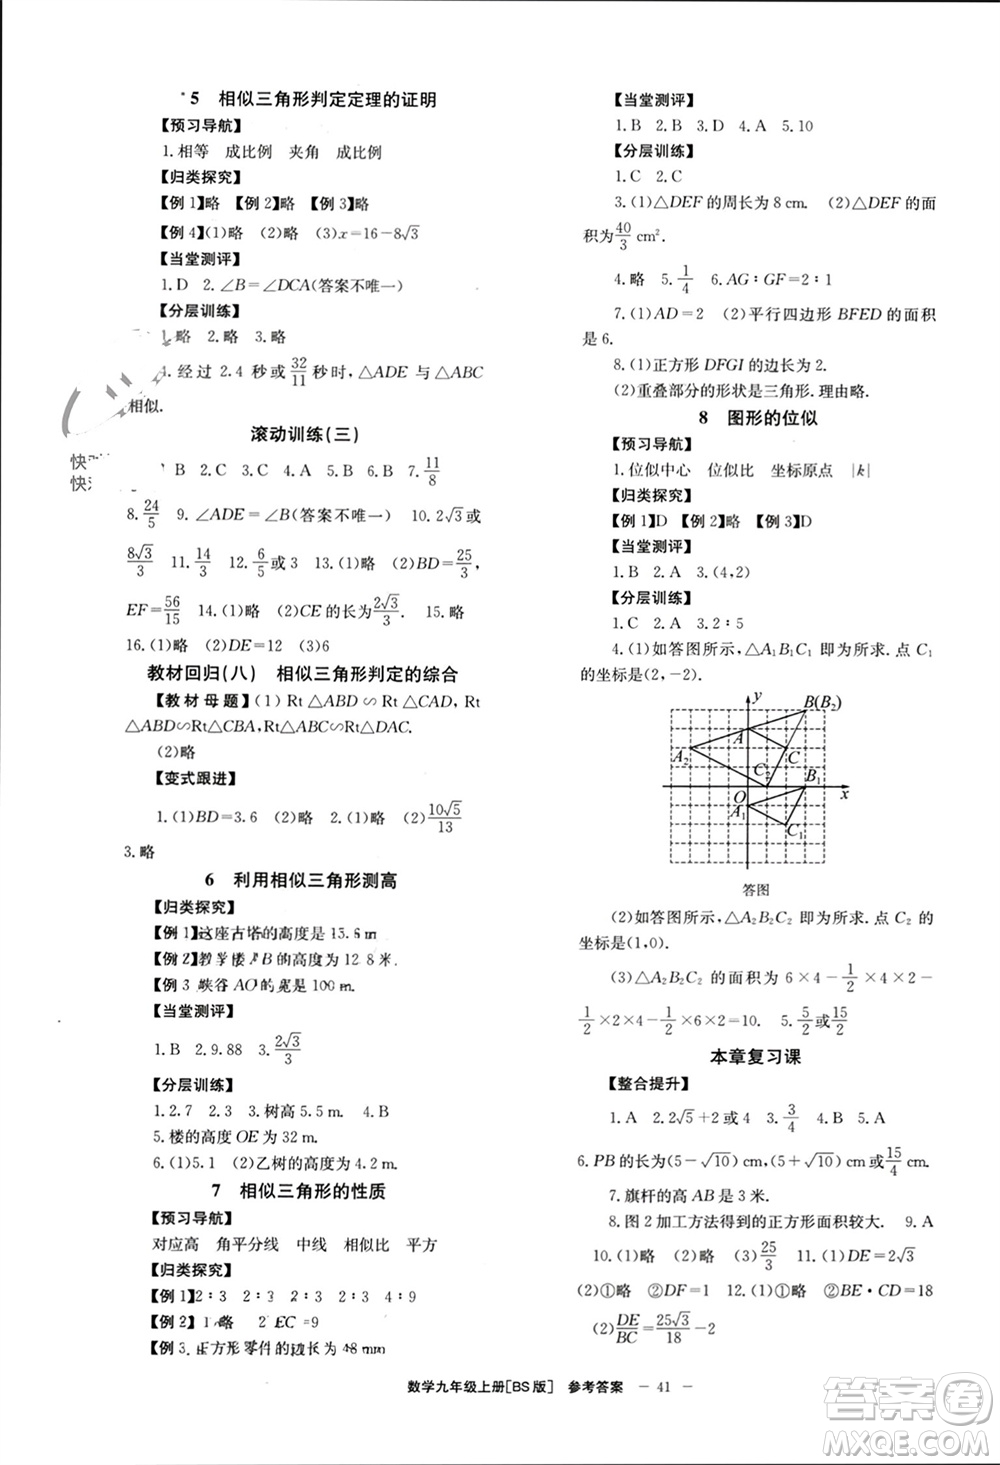 * 5 相似三角形判定定理的证明
【预习导航】
1.相等 成比例 夹角 成比例
【归类探究】
【例 1】略 【例 2】略 【例 3】略
【例 4】(1)略 (2)略 (3)x=16-8√3
【当堂测评】
1.D 2.∠B=∠DCA(答案不唯一)
【分层训练】
1.略 2.略 3.略
4.经过 2.4 秒或 32/11 秒时,△ADE 与△ABC
相似.
滚动训练(三)
B 2.C 3.C 4.A 5.B 6.B 7. 11/8
8. 24/5 9.∠ADE=∠B(答案不唯一) 10.2√3或
8√3/3 11. 14/3 12. 6/5或3 13.(1)略 (2)BD=25/3,
EF=56/15 14.(1)略 (2)CE 的长为2√3/3. 15.略
16.(1)略 (2)DE=12 (3)6
教材回归(八) 相似三角形判定的综合
【教材母题】(1) Rt △ABD∽Rt △CAD, Rt
△ABD∽Rt△CBA,Rt△ABC∽Rt△DAC.
(2)略
【变式跟进】
1.(1)BD=3.6 (2)略 2.(1)略 (2)10√5/13
3.略
6 利用相似三角形测高
【归类探究】
【例 1】这座古塔的高度是 15.6 m.
【例 2】教学楼 AB 的高度为 12.8 米.
【例 3】峡谷 AO 的宽是 100 m.
【当堂测评】
1.B 2.9.88 3. 2√3/3
【分层训练】
1.2.7 2.3 3.树高 5.5 m. 4.B
5.楼的高度 OE 为 32 m.
6.(1)5.1 (2)乙树的高度为 4.2 m.
7 相似三角形的性质
【预习导航】
对应高 角平分线 中线 相似比 平方
【归类探究】
【例 1】2∶3 2∶3 2∶3 2∶3 4∶9
【例 2】 略 EC=9
【例 3】正方形零件的边长为 48 mm.
【当堂测评】
1.B 2.B 3.D 4.A 5.10
【分层训练】
1.C 2.C
3.(1)△DEF 的周长为 8 cm. (2)△DEF 的面
积为40/3 cm².
4.略 5. 1/4 6.AG∶GF=2∶1
7.(1)AD=2 (2)平行四边形 BFED 的面积
是 6.
8.(1)正方形 DFGI 的边长为 2.
(2)重叠部分的形状是三角形.理由略.
8 图形的位似
【预习导航】
1.位似中心 位似比 坐标原点 |k|
【归类探究】
【例 1】D 【例 2】略 【例 3】D
【当堂测评】
1.B 2.A 3.(4,2)
【分层训练】
1.C 2.A 3.2∶5
4.(1)如答图所示,△A₁B₁C₁ 即为所求.点 C₁
的坐标是(2,-2).
y
B(B₂)
A
A₂
C
C₂
B₁
O
x
A₁
C₁
答图
(2)如答图所示,△A₂B₂C₂ 即为所求.点 C₂ 的
坐标是(1,0).
(3)△A₂B₂C₂ 的面积为 6×4-1/2×4×2-
1/2×2×4-1/2×6×2=10. 5. 5/2或15/2
本章复习课
【整合提升】
1.A 2.2√5+2或4 3. 3/4 4.B 5.A
6.PB 的长为(5-√10)cm,(5+√10)cm或15/4 cm.
7.旗杆的高 AB 是 3 米.
8.图 2 加工方法得到的正方形面积较大. 9.A
10.(1)略 (2)略 (3)25/3 11.(1)DE=2√3
(2)①略 ②DF=1 12.(1)①略 ②BE·CD=18
(2)DE/BC=25√3/18-2
数学九年级上册[BS版] 参考答案 — 41 —
答案卷
MXQE.COM